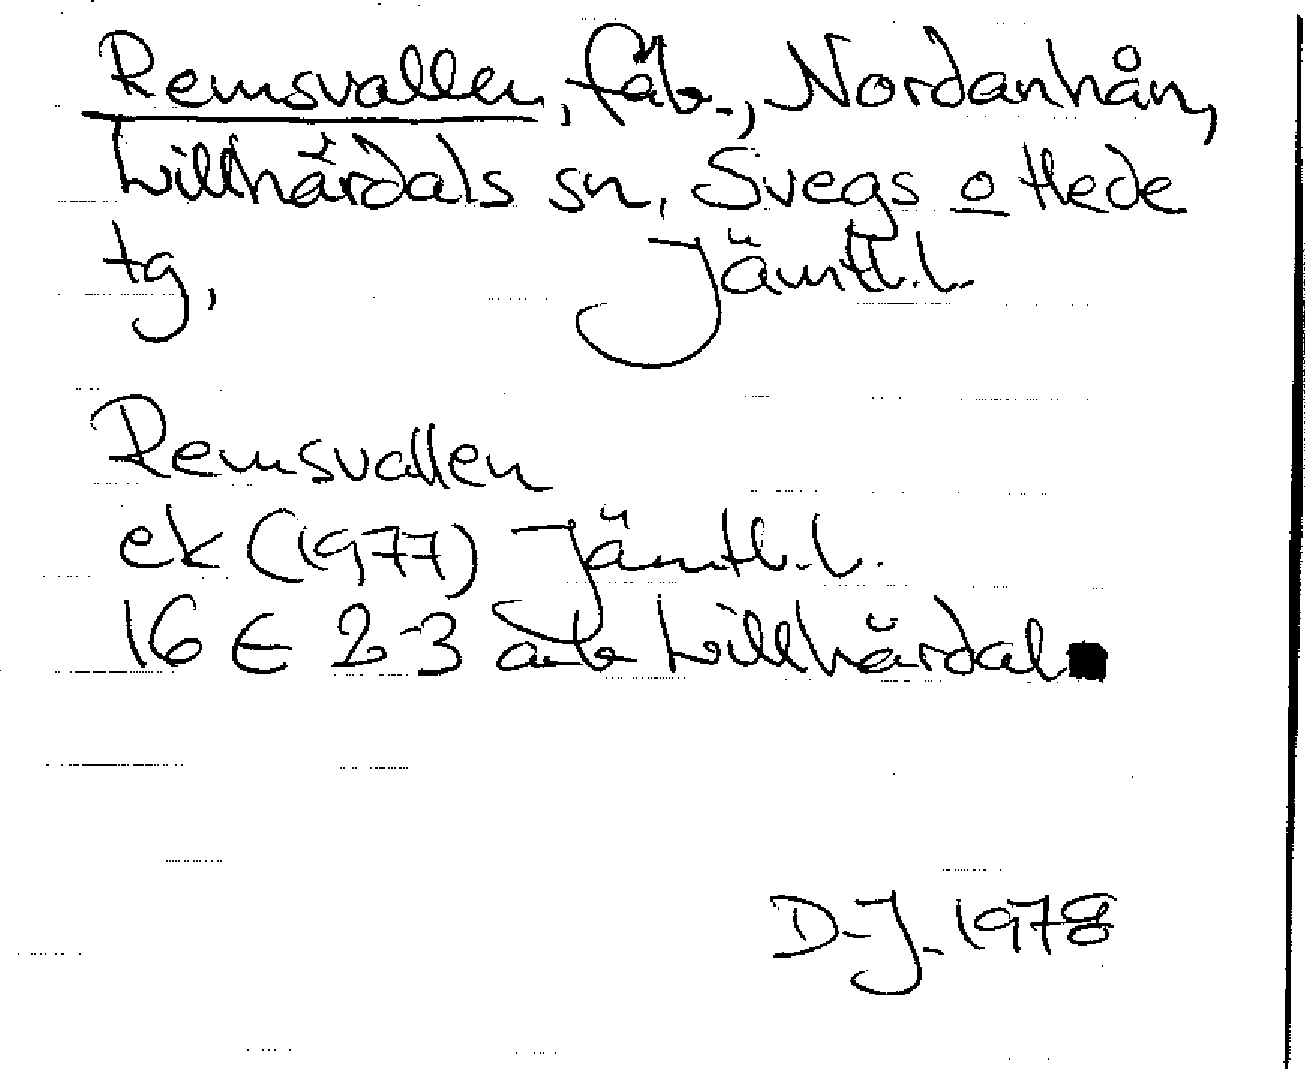 Remsvallen, fäb., Nordanhån,
Lillhärdals sn, Svegs o Hede
tg, Jämtl.l.
Remsvallen
ek (1977) Jämtl.l.
16 E 2-3 a-b Lillhärdal
D-J- 1978